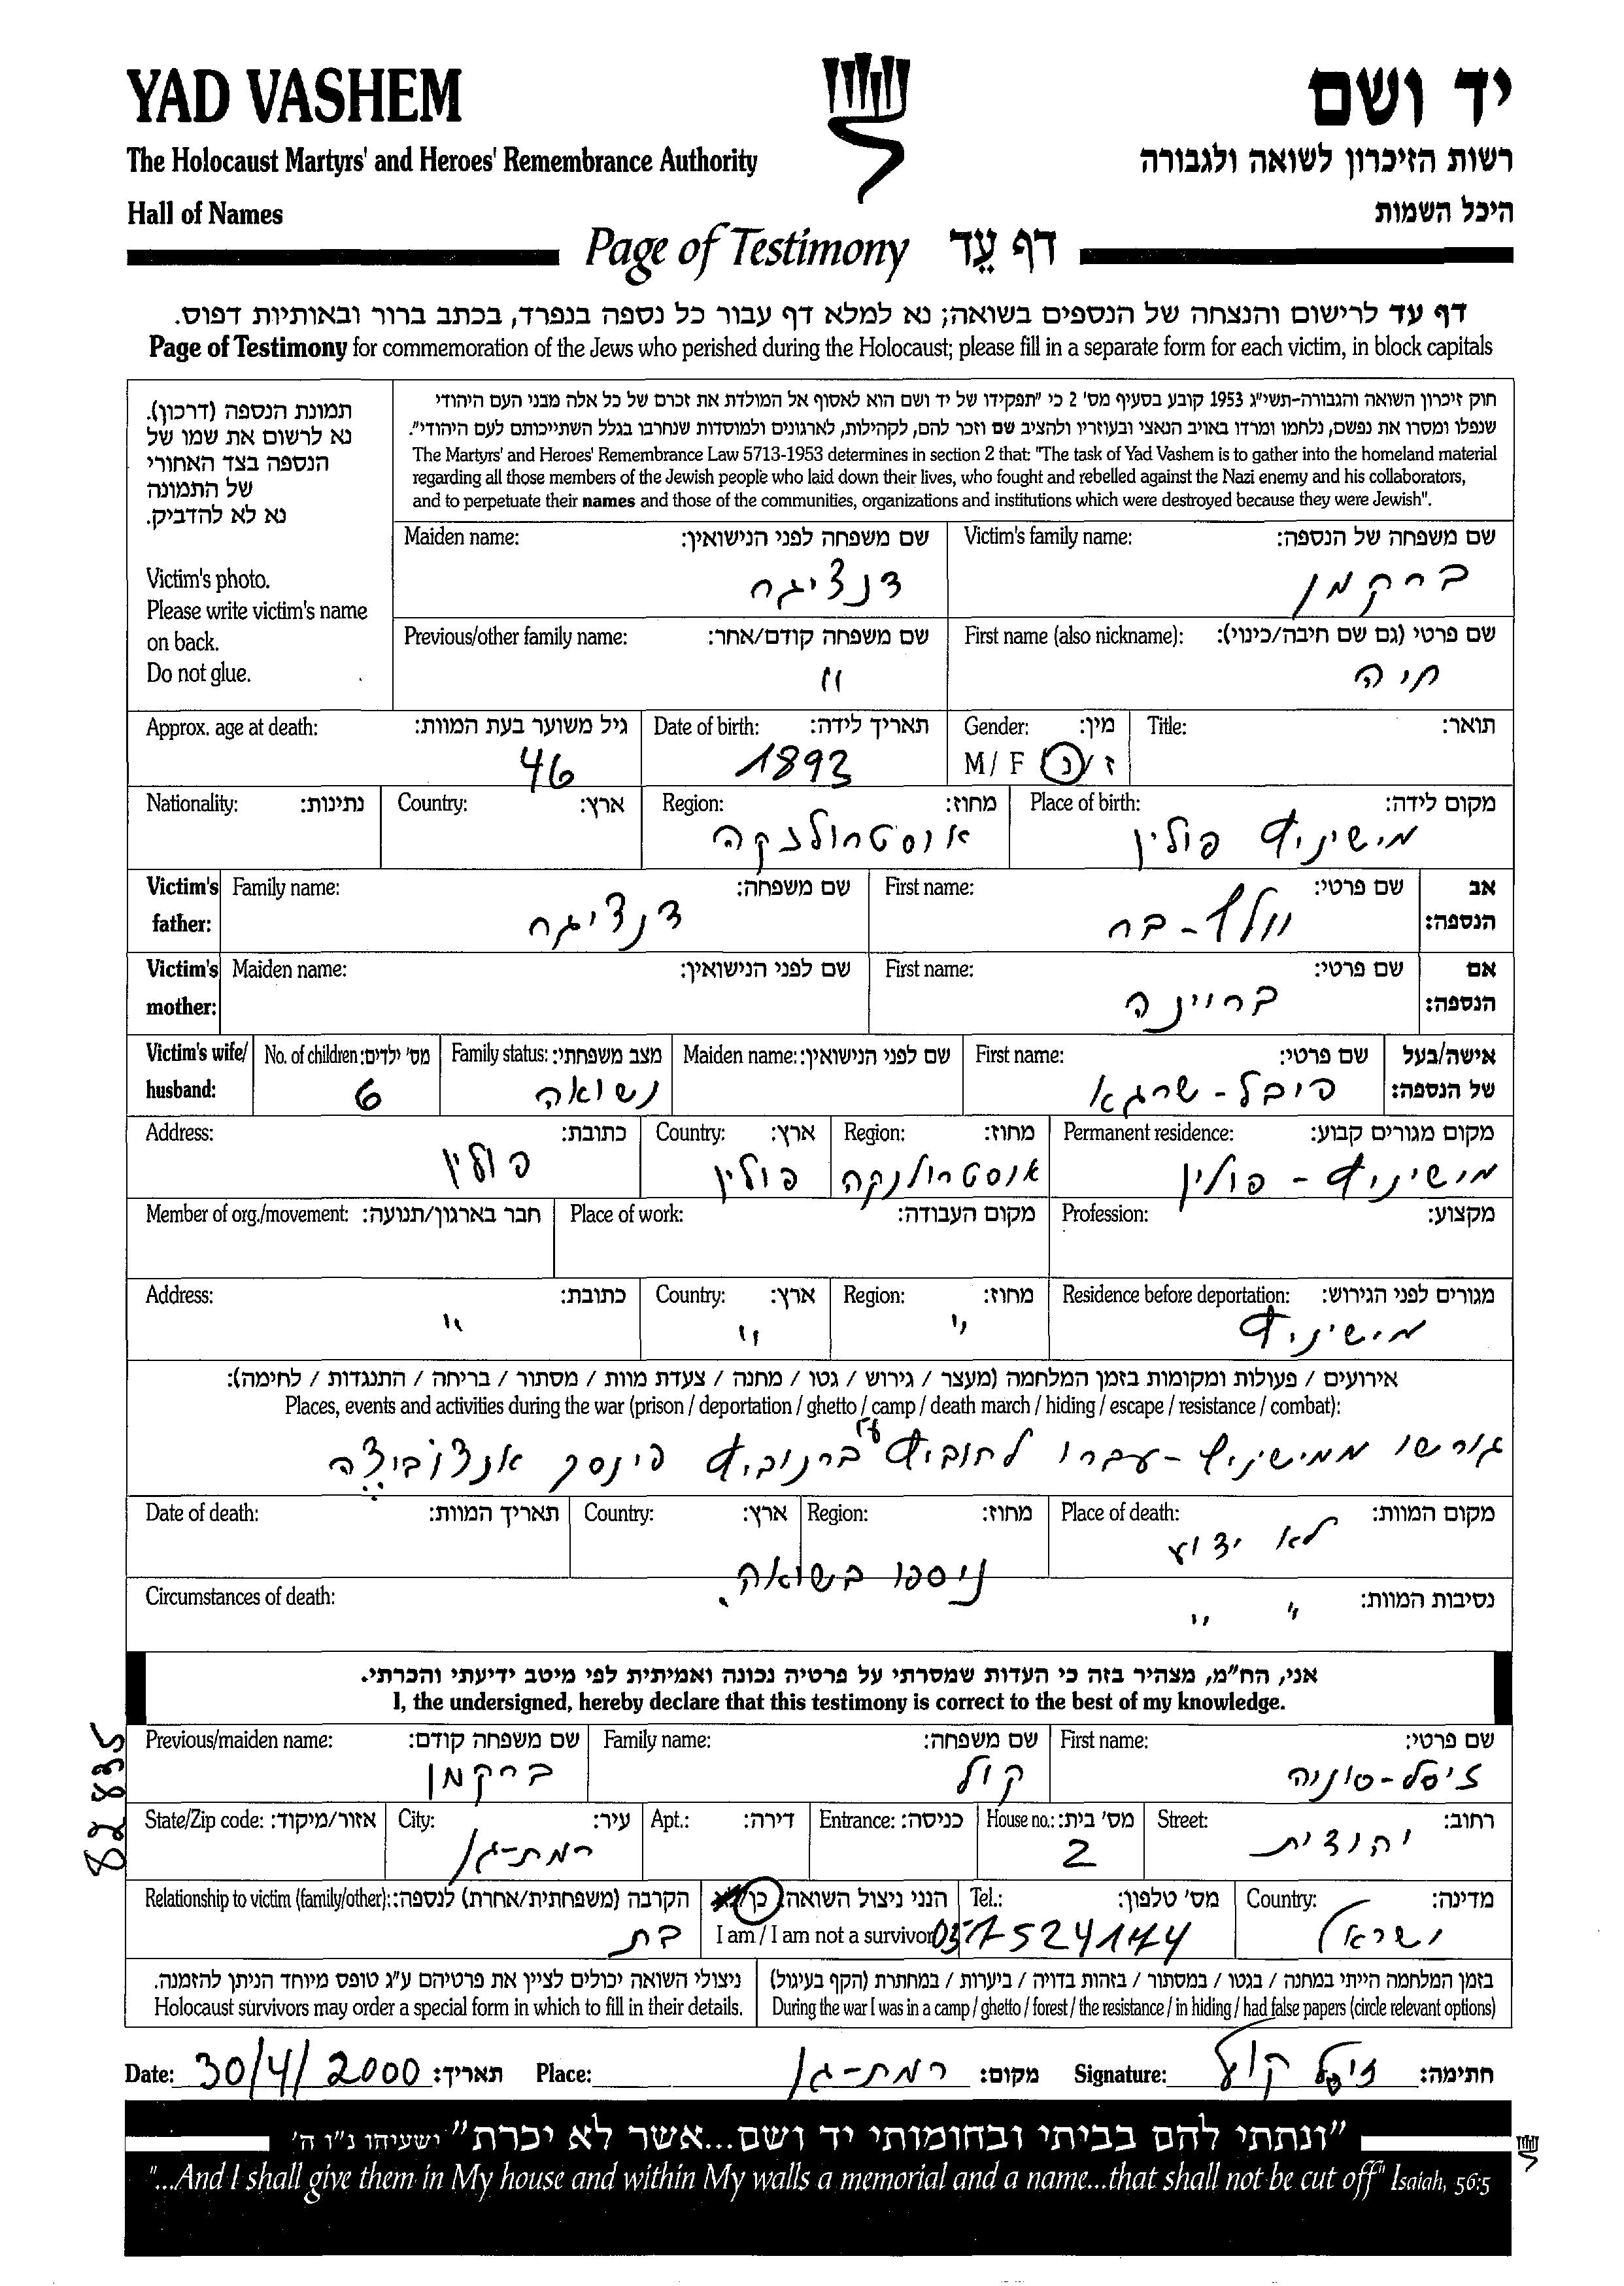 YAD VASHEM
יד ושם
The Holocaust Martyrs' and Heroes' Remembrance Authority
רשות הזיכרון לשואה ולגבורה
Hall of Names
היכל השמות
Page of Testimony דף עֵד
דף עד לרישום והנצחה של הנספים בשואה; נא למלא דף עבור כל נספה בנפרד, בכתב ברור ובאותיות דפוס.
Page of Testimony for commemoration of the Jews who perished during the Holocaust; please fill in a separate form for each victim, in block capitals
תמונת הנספה (דרכון).
נא לרשום את שמו של
הנספה בצד האחורי
של התמונה
נא לא להדביק.
Victim's photo.
Please write victim's name
on back.
Do not glue.
חוק זיכרון השואה והגבורה-תשי"ג 1953 קובע בסעיף מס' 2 כי "תפקידו של יד ושם הוא לאסוף אל המולדת את זכרם של כל אלה מבני העם היהודי
שנפלו ומסרו את נפשם, נלחמו ומרדו באויב הנאצי ובעוזריו ולהציב שם וזכר להם, לקהילות, לארגונים ולמוסדות שנחרבו בגלל השתייכותם לעם היהודי".
The Martyrs' and Heroes' Remembrance Law 5713-1953 determines in section 2 that: "The task of Yad Vashem is to gather into the homeland material
regarding all those members of the Jewish people who laid down their lives, who fought and rebelled against the Nazi enemy and his collaborators,
and to perpetuate their names and those of the communities, organizations and institutions which were destroyed because they were Jewish".
Victim's family name: שם משפחה של הנספה:
ברקמן
Maiden name: שם משפחה לפני הנישואין:
דנציגר
First name (also nickname): שם פרטי (גם שם חיבה/כינוי):
חיה
Previous/other family name: שם משפחה קודם/אחר:
"
Title: תואר:
Gender: מין:
M/ F ז/נ
Date of birth: תאריך לידה:
1893
Approx. age at death: גיל משוער בעת המוות:
46
Place of birth: מקום לידה:
מישיניץ פולין
Region: מחוז:
אוסטרולנקה
Country: ארץ:
Nationality: נתינות:
Victim's father: אב הנספה:
First name: שם פרטי:
וולף-בר
Family name: שם משפחה:
דנציגר
Victim's mother: אם הנספה:
First name: שם פרטי:
בריינה
Maiden name: שם לפני הנישואין:
Victim's wife/ husband: אישה/בעל של הנספה:
First name: שם פרטי:
פיבל-שרגא
Maiden name: שם לפני הנישואין:
Family status: מצב משפחתי:
נשואה
No. of children: מס' ילדים:
6
Permanent residence: מקום מגורים קבוע:
מישיניץ - פולין
Region: מחוז:
אוסטרולנקה
Country: ארץ:
פולין
Address: כתובת:
פולין
Profession: מקצוע:
Place of work: מקום העבודה:
Member of org./movement: חבר בארגון/תנועה:
Residence before deportation: מגורים לפני הגירוש:
מישיניץ
Region: מחוז:
"
Country: ארץ:
"
Address: כתובת:
"
אירועים / פעולות ומקומות בזמן המלחמה (מעצר / גירוש / גטו / מחנה / צעדת מוות / מסתור / בריחה / התנגדות / לחימה):
Places, events and activities during the war (prison / deportation / ghetto / camp / death march / hiding / escape / resistance / combat):
גורשו ממישיניץ - עברו פינסק
Place of death: מקום המוות:
לא ידוע
Region: מחוז:
Country: ארץ:
Date of death: תאריך המוות:
ניספו בשואה.
Circumstances of death: נסיבות המוות:
" "
אני, הח"מ, מצהיר בזה כי העדות שמסרתי על פרטיה נכונה ואמיתית לפי מיטב ידיעתי והכרתי.
I, the undersigned, hereby declare that this testimony is correct to the best of my knowledge.
82835
First name: שם פרטי:
זיסל-סוניה
Family name: שם משפחה:
קול
Previous/maiden name: שם משפחה קודם:
ברקמן
Street: רחוב:
יהודית
House no.: מס' בית:
2
Entrance: כניסה:
Apt.: דירה:
City: עיר:
רמת-גן
State/Zip code: אזור/מיקוד:
Country: מדינה:
ישראל
Tel.: מס' טלפון:
03-7524144
הנני ניצול השואה: כן
I am / I am not a survivor
Relationship to victim (family/other): הקרבה (משפחתית/אחרת) לנספה:
בת
בזמן המלחמה הייתי במחנה / בגטו / במסתור / בזהות בדויה / ביערות / במחתרת (הקף בעיגול)
During the war I was in a camp / ghetto / forest / the resistance / in hiding / had false papers (circle relevant options)
ניצולי השואה יכולים לציין את פרטיהם ע"ג טופס מיוחד הניתן להזמנה.
Holocaust survivors may order a special form in which to fill in their details.
Date: 30/4/2000 תאריך: Place: רמת-גן מקום: Signature: זיסל קול חתימה:
"ונתתי להם בביתי ובחומותי יד ושם...אשר לא יכרת" ישעיהו נ"ו ה'
"...And I shall give them in My house and within My walls a memorial and a name...that shall not be cut off" Isaiah, 56:5